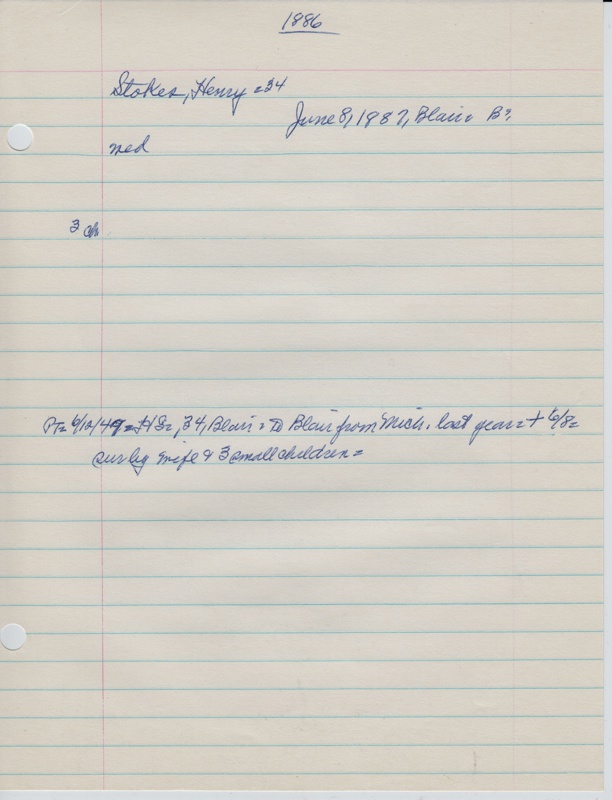 1886
Stokes, Henry = 34
June 8, 1887, Blair =
med
3 ch
34, Blair = to Blair from Mich. last year = + 6/8 =
sur by wife & 3 small children =